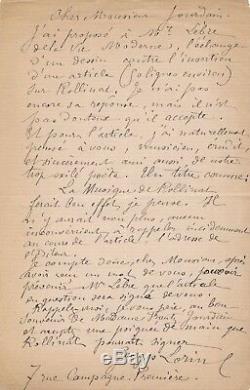 Cher Monsieur Jourdain,
J'ai proposé à Mr Lèbre
de la Vie Moderne, l'échange
d'un dessin contre l'insertion
d'un article (50 lignes environ)
sur Rollinat. Je n'ai pas
encore sa réponse, mais il n'est
pas douteux qu'il accepte.
Et pour l'article, j'ai naturellement
pensé à vous, musicien, érudit,
et sincèrement ami aussi, de notre
trop exilé poète. Un titre comme:
La Musique de Rollinat
ferait bon effet, je pense. Il
n'y aurait non plus, aucun
inconvénient à rappeler incidemment
au cours de l'article l'adresse de
l'éditeur.
Je compte donc, cher Monsieur, après
avoir reçu un mot de vous, pouvoir
prévenir Mr Lèbre que l'article
en question sera signé de vous.
Rappelez-moi, je vous prie, au bon
souvenir de Madame Frantz Jourdain
et acceptez une poignée de main que
Rollinat pourrait signer
Lorin
7 rue Campagne-Première.